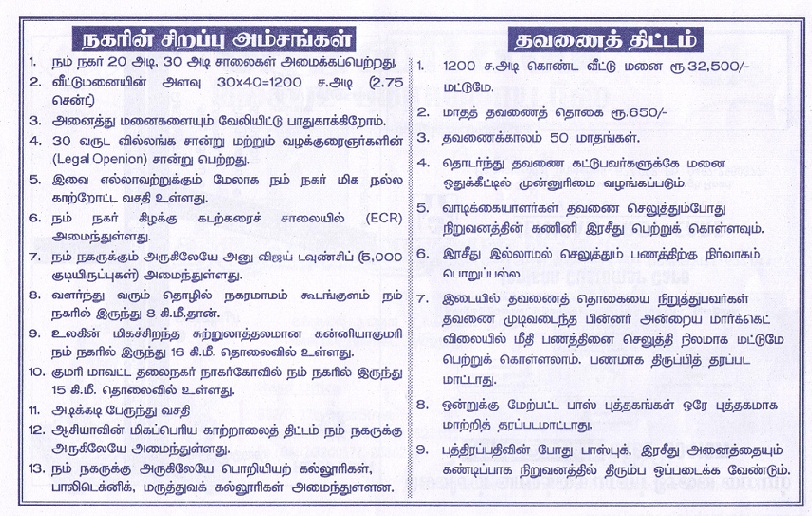 நகரின் சிறப்பு அம்சங்கள்
1. நம் நகர் 20 அடி, 30 அடி சாலைகள் அமைக்கப்பெற்றது.
2. வீட்டுமனையின் அளவு 30x40=1200 ச.அடி (2.75
சென்ட்)
3. அனைத்து மனைகளையும் வேலியிட்டு பாதுகாக்கிறோம்.
4. 30 வருட வில்லங்க சான்று மற்றும் வழக்குரைஞர்களின்
(Legal Openion) சான்று பெற்றது.
5. இவை எல்லாவற்றுக்கும் மேலாக நம் நகர் மிக நல்ல
காற்றோட்ட வசதி உள்ளது.
6. நம் நகர் கிழக்கு கடற்கரைச் சாலையில் (ECR)
அமைந்துள்ளது.
7. நம் நகருக்கும் அருகிலேயே அனு விஜய் டவுண்சிப் (5,000
குடியிருப்புகள்) அமைந்துள்ளது.
8. வளர்ந்து வரும் தொழில் நகரமாமம் கூடங்குளம் நம்
நகரில் இருந்து 8 கி.மீ.தான்.
9. உலகின் மிகச்சிறந்த சுற்றுலாத்தலமான கன்னியாகுமரி
நம் நகரில் இருந்து 16 கி.மீ. தொலைவில் உள்ளது.
10. குமரி மாவட்ட தலைநகர் நாகர்கோவில் நம் நகரில் இருந்து
15 கி.மீ. தொலைவில் உள்ளது.
11. அடிக்கடி பேருந்து வசதி
12. ஆசியாவின் மிகப்பெரிய காற்றாலைத் திட்டம் நம் நகருக்கு
அருகிலேயே அமைந்துள்ளது.
13. நம் நகருக்கு அருகிலேயே பொறியியற் கல்லூரிகள்,
பாலிடெக்னிக், மருத்துவக் கல்லூரிகள் அமைந்துள்ளன.
தவணைத் திட்டம்
1. 1200 ச.அடி கொண்ட வீட்டு மனை ரூ.32,500/-
மட்டுமே.
2. மாதத் தவணைத் தொகை ரூ.650/-
3. தவணைக்காலம் 50 மாதங்கள்.
4. தொடர்ந்து தவணை கட்டுபவர்களுக்கே மனை
ஒதுக்கீட்டில் முன்னுரிமை வழங்கப்படும்
5. வாடிக்கையாளர்கள் தவணை செலுத்தும்போது
நிறுவனத்தின் கணினி இரசீது பெற்றுக் கொள்ளவும்.
6. இரசீது இல்லாமல் செலுத்தும் பணத்திற்கு நிர்வாகம்
பொறுப்பல்ல
7. இடையில் தவணைத் தொகையை நிறுத்துபவர்கள்
தவணை முடிவடைந்த பின்னர் அன்றைய மார்க்கெட்
விலையில் மீதி பணத்தினை செலுத்தி நிலமாக மட்டுமே
பெற்றுக் கொள்ளலாம். பணமாக திருப்பித் தரப்பட
மாட்டாது.
8. ஒன்றுக்கு மேற்பட்ட பாஸ் புத்தகங்கள் ஒரே புத்தகமாக
மாற்றித் தரப்படமாட்டாது.
9. பத்திரப்பதிவின் போது பாஸ்புக், இரசீது அனைத்தையும்
கண்டிப்பாக நிறுவனத்தில் திரும்ப ஒப்படைக்க வேண்டும்.